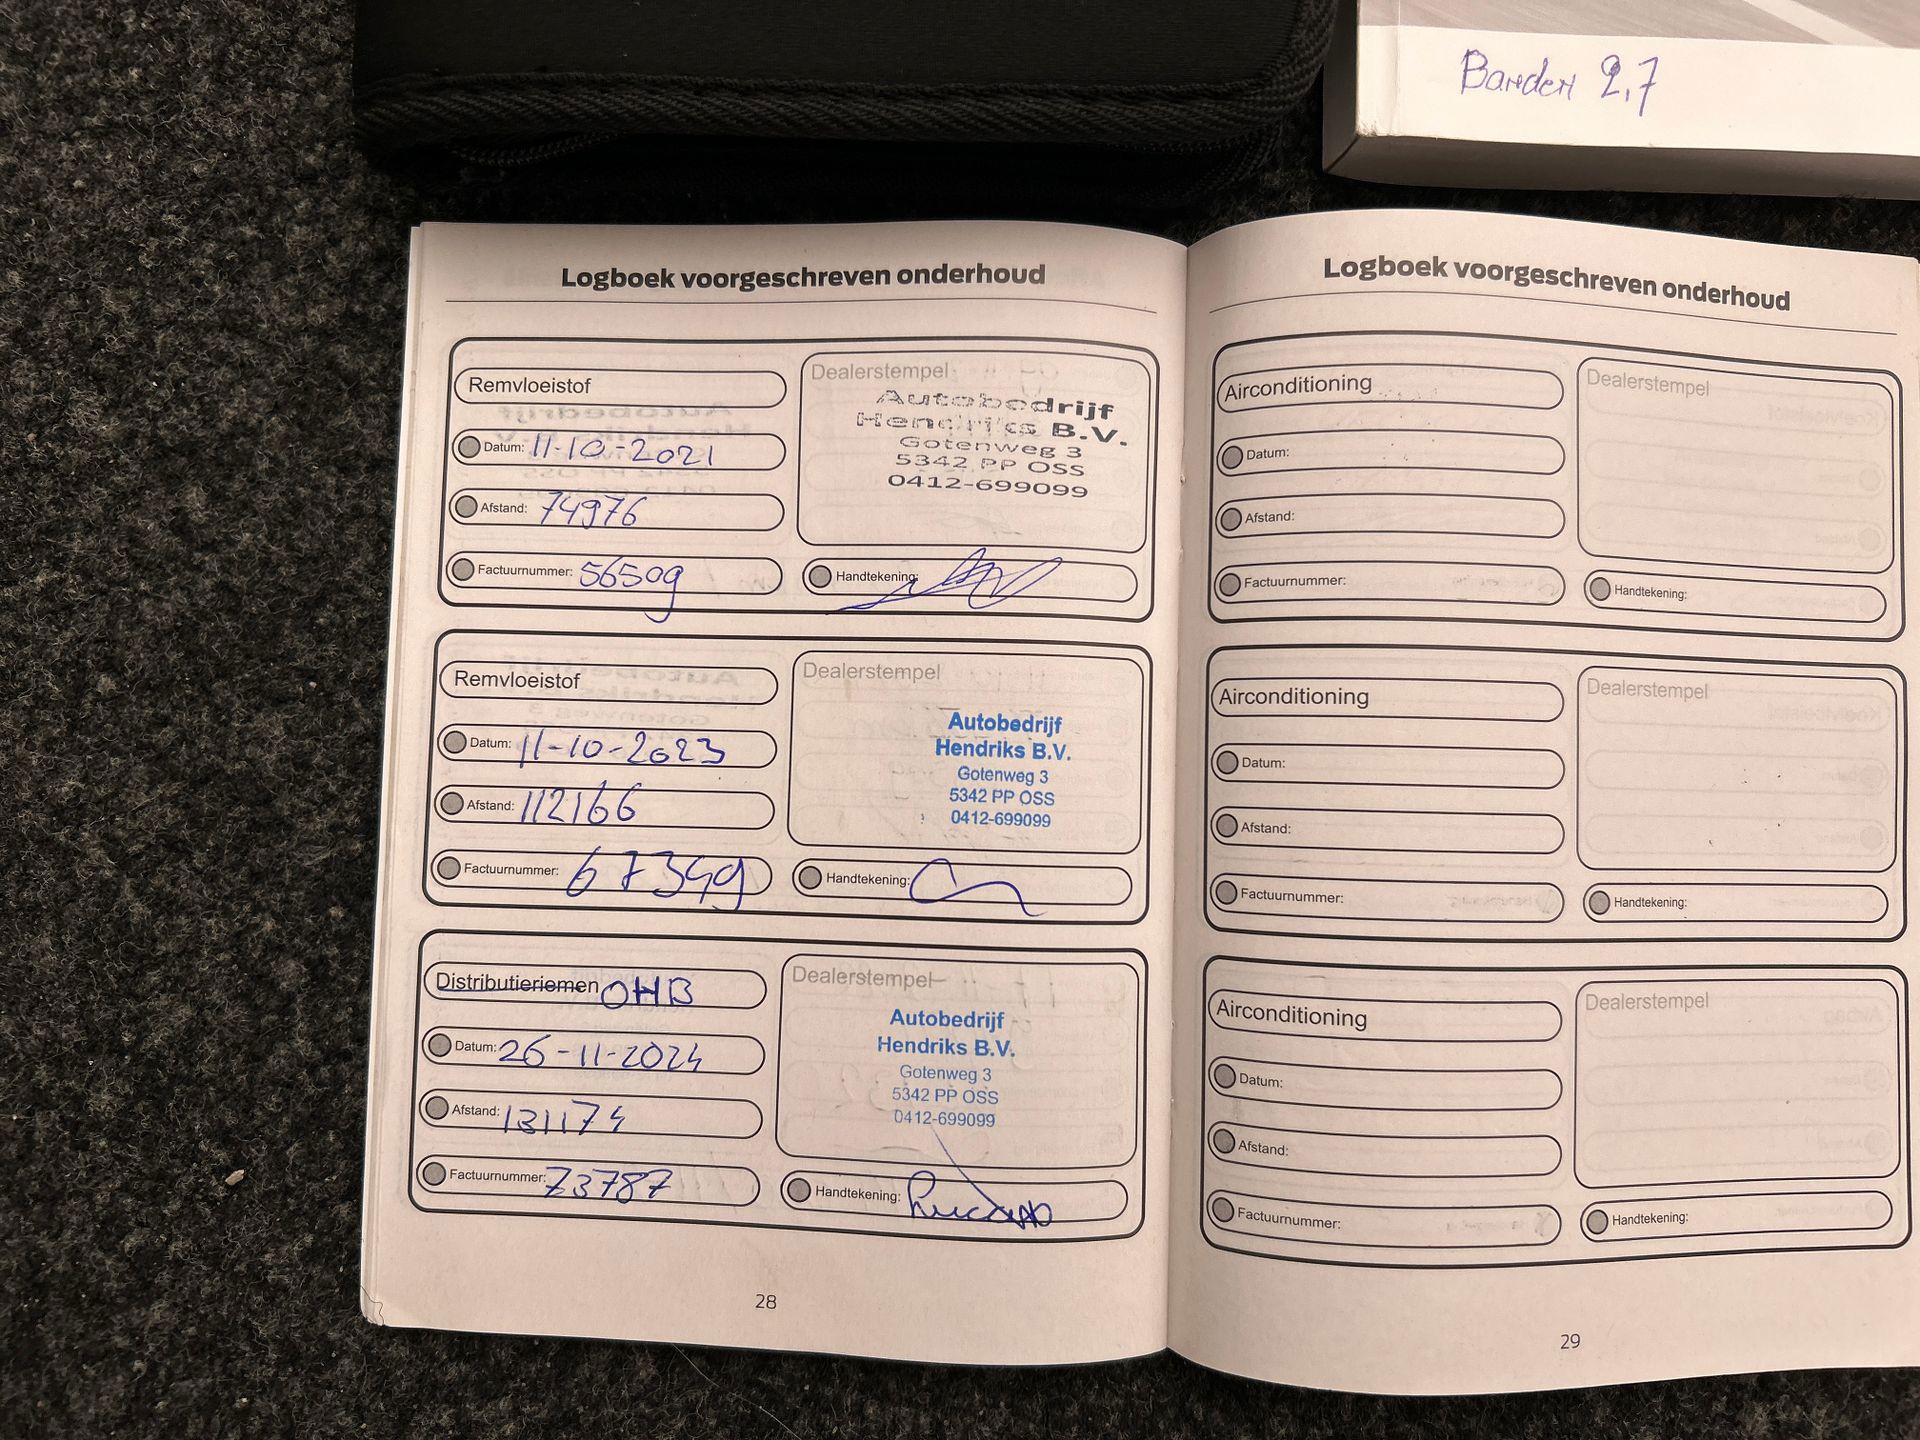 Banden 2,7
Logboek voorgeschreven onderhoud
Remvloeistof
Datum: 11-10-2021
Afstand: 74976
Factuurnummer: 56509
Dealerstempel
Autobedrijf
Hendriks B.V.
Gotenweg 3
5342 PP OSS
0412-699099
Handtekening:
Remvloeistof
Datum: 11-10-2023
Afstand: 112166
Factuurnummer: 67349
Dealerstempel
Autobedrijf
Hendriks B.V.
Gotenweg 3
5342 PP OSS
0412-699099
Handtekening:
Distributieriemen OHB
Datum: 26-11-2024
Afstand: 131174
Factuurnummer: 73787
Dealerstempel
Autobedrijf
Hendriks B.V.
Gotenweg 3
5342 PP OSS
0412-699099
Handtekening:
28
Logboek voorgeschreven onderhoud
Airconditioning
Datum:
Afstand:
Factuurnummer:
Dealerstempel
Handtekening:
Airconditioning
Datum:
Afstand:
Factuurnummer:
Dealerstempel
Handtekening:
Airconditioning
Datum:
Afstand:
Factuurnummer:
Dealerstempel
Handtekening:
29